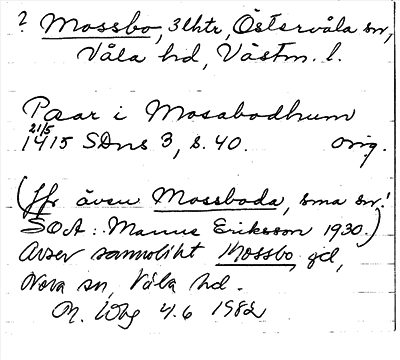 ? Mossbo, 3 lhtr, Östervåla sn,
Våla hd, Västm. l.
Paar i Mosabodhum
21/5
1415 SDns 3, s. 40. orig.
(Jfr även Mossboda, sma sn!
SOA: Manne Eriksson 1930.)
Avser sannolikt Mossbo, gd,
Nora sn, Våla hd.
M. Wbg 4.6 1982